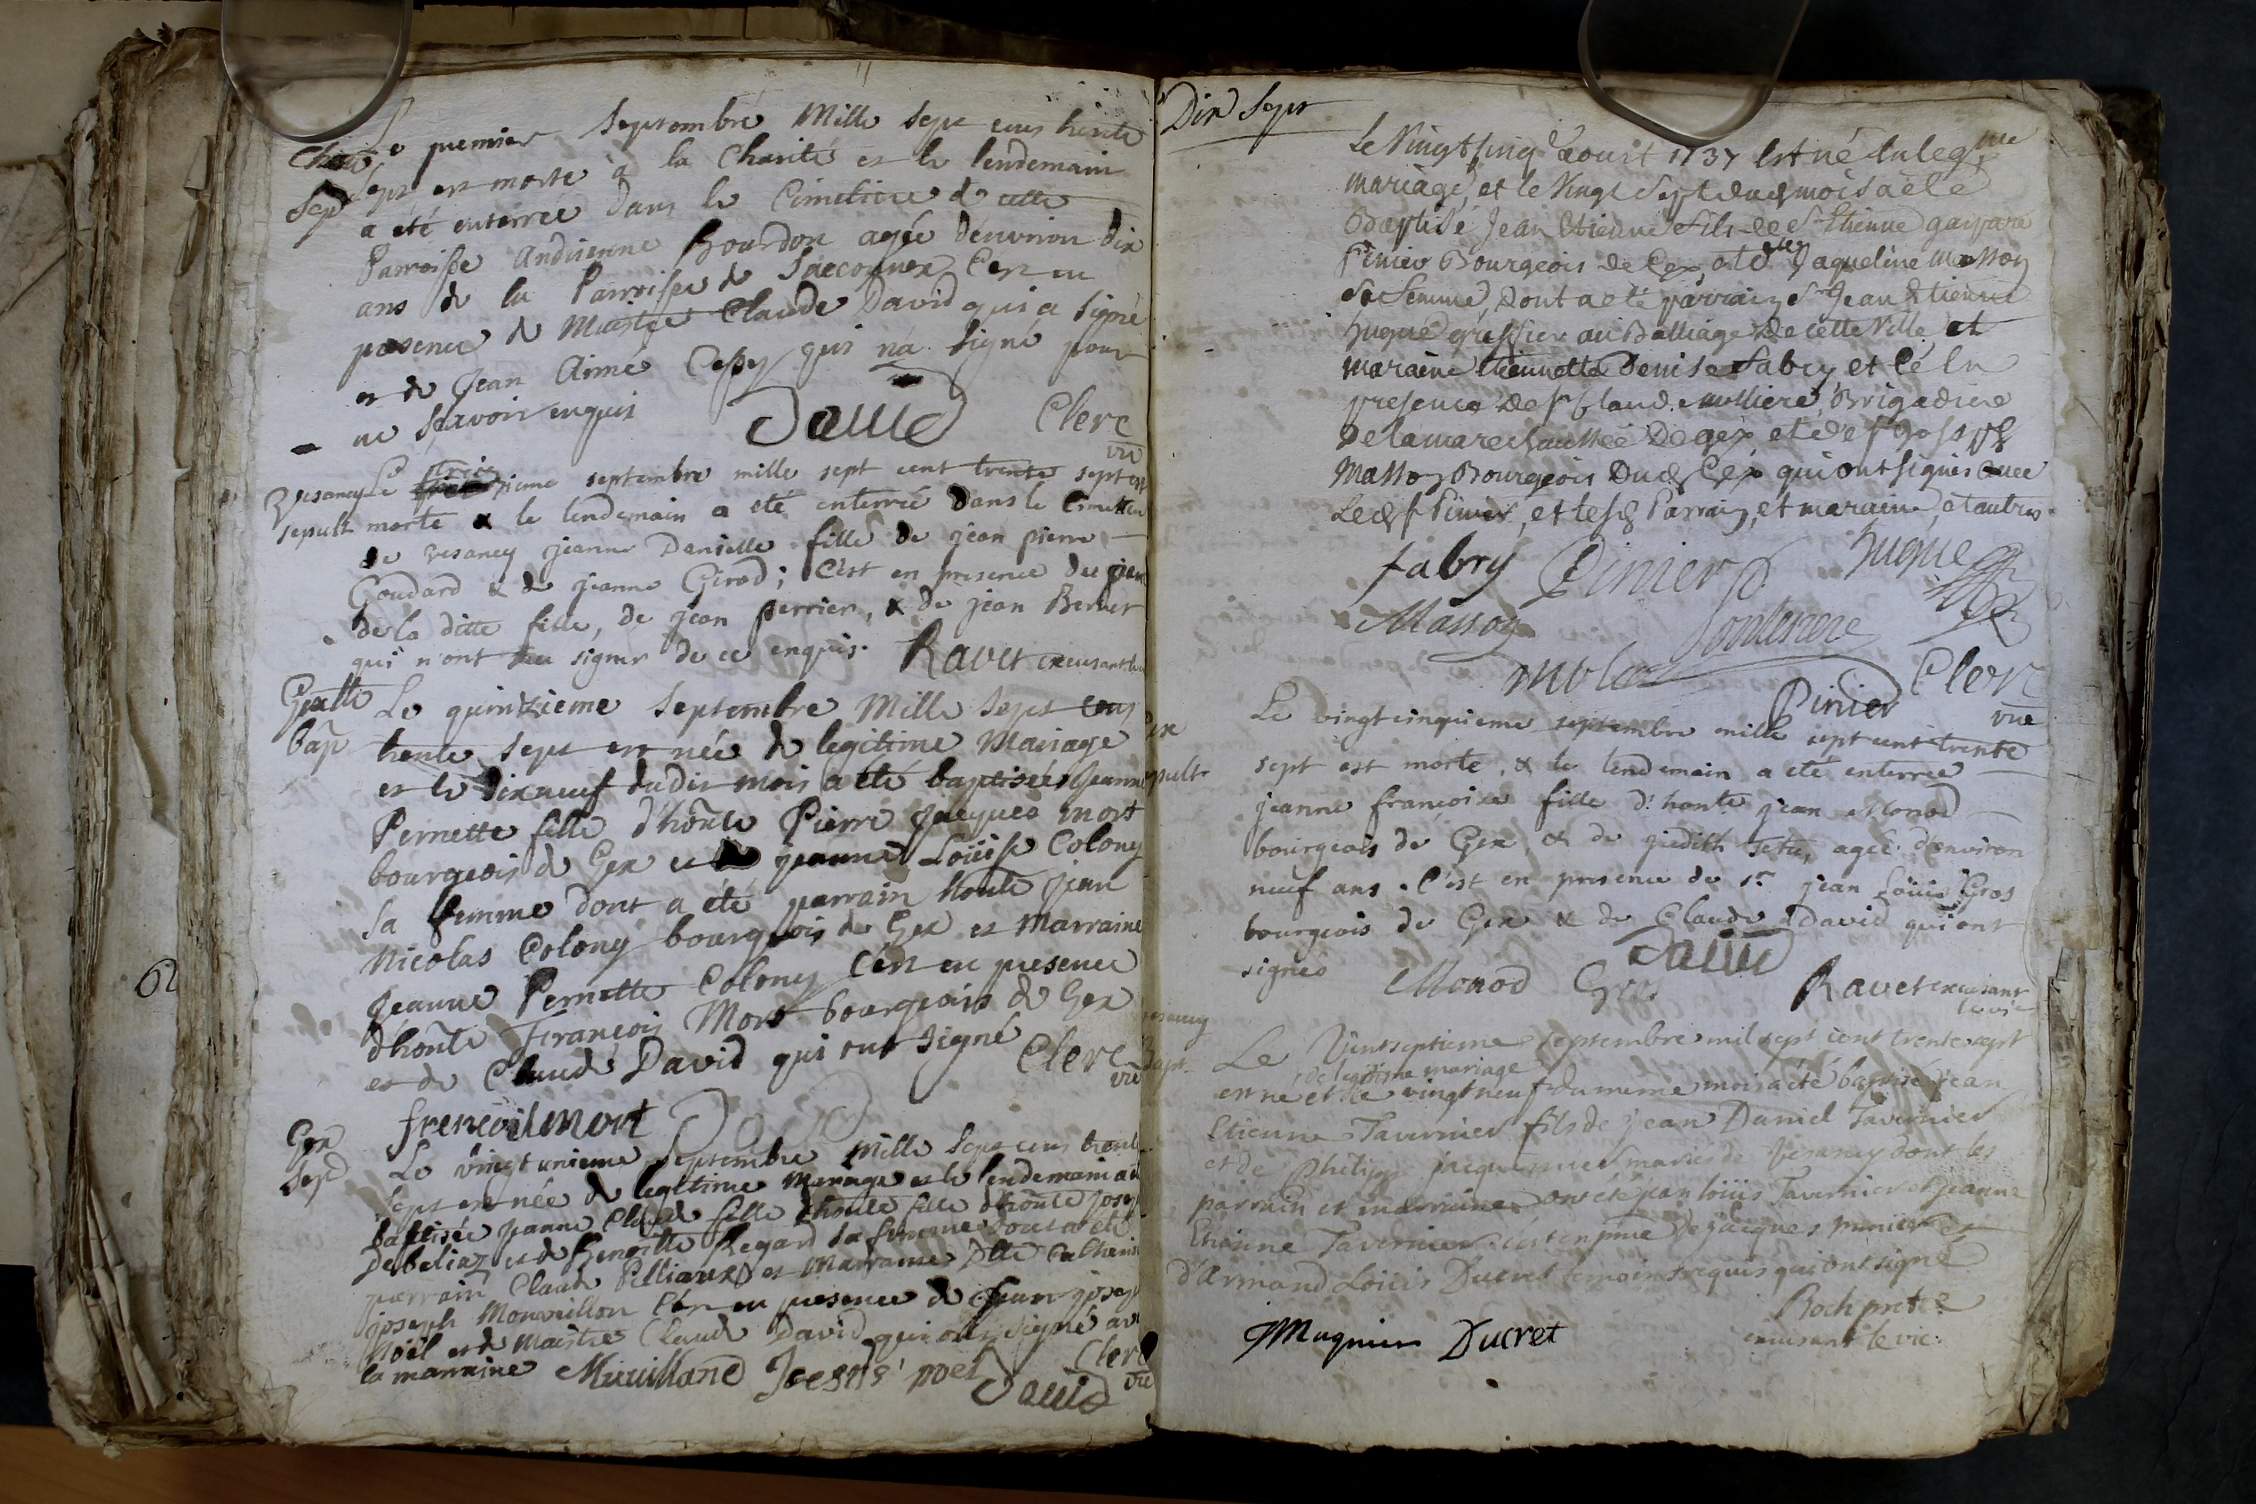 Le premier Septembre Mille Sept cens trente
Charité
Sep
Sept est morte à la Charité et le lendemain
a été enterrée dans le Cimetiere de cette
Parroisse Andrienne Bourdon agée d'environ dix
ans de la Parroisse de Sacconnex C'est en
presence de Maistre Claude David qui a signé
et de Jean Aimé Cessy qui n'a signé pour
ne sçavoir enquis David Clerc
vic
Vesancy Le treizieme septembre mille sept cent trente sept est
sepult. morte & le lendemain a été enterrée dans le Cimettiere
de vesancy jeanne Danielle fille de jean pierre
Goudard & de jeanne Girod; C'est en presence du pere
de la ditte fille, de jean perrier, & de jean
qui n'ont sceu signer de ce enquis. Ravet excusant
Gex Le quinzieme Septembre Mille Sept cens
bap trente sept est née de legitime Mariage
et le dixneuf dudit mois a eté baptisée Jeanne
Pernette fille d'honte Pierre Jacques mort
bourgeois de Gex et de jeanne Loüise Colony
sa femme dont a été parrain honte Jean
Nicolas Colony bourgeois de Gex et Marraine
Jeanne Pernette Colony C'est en presence
d'honte François Mort bourgeois de Gex
et de Claude David qui ont signé Clerc
vic
frencoi mort David
Gex Le vingt unieme Septembre Mille Sept cens trente
Sep sept est née de legitime Mariage et le lendemain a été
baptisée Jeanne Claude fille d'honte Joseph
Debeliaz et de Benoitte Regard sa femme dont a été
parrain Claude Pelliaux et Marraine Dlle Catherine
joseph Mouvillon C'est en presence de Jean joseph
Noël et de Maistre Claude David qui ont signé avec
la marraine Mouvilland Joesph noel David Clerc
vic
Dix Sept
Le Vingt sinq d'aoust 1737 Est né En legme
mariage, et le Vingt Sept dud mois a eté
Baptisé Jean Etienne fils de Sr Etienne gaspard
Pinier Bourgeois de Gex, et de Dlle Jaqueline Masson
Sa femme, Dont a eté parrain Sr Jean Etienne
huguè greffier au Balliage De cette Ville, et
maraine Etiennette Denise Fabry et C'é En
presence De Sr Claude molliere Brigadier
De la marechaussée De gex et de Sr Joseph
Masson Bourgeois Dud Gex qui ont signés avec
Led Sr Pinier, et lesd Parrain, et maraine, et autres.
fabry Pinier hugue
Masson
Clerc
vic
Pinier
Gex Le vingtcinquieme septembre mille sept cent trente
sepult. sept est morte, & le lendemain a été enterrée
jeanne françoise fille d'honte jean Monod
bourgeois de Gex & de judith Tetu, agée d'environ
neuf ans. C'est en presence de sr jean Loüis Gros
bourgeois de Gex & de Claude David qui ont
signés Monod Gros David Ravet excusant
le vic
Vesancy
bapt. Le Vint septieme Septembre mil sept cent trente sept
de legitime mariage
est né et le vingt neuf du meme mois a été baptisé jean
Etienne Tavernier fils de jean Daniel Tavernier
et de Philippe jacquemier mariés de Vesancy dont les
parrain et marraine ont été jean loüis Tavernier et jeanne
Etienne Tavernier. c'est en pnce de jacques
d'Armand Loüis Ducret temoins requis qui ont signé
Roch pretre
excusant le vic.
JMugnier Ducret